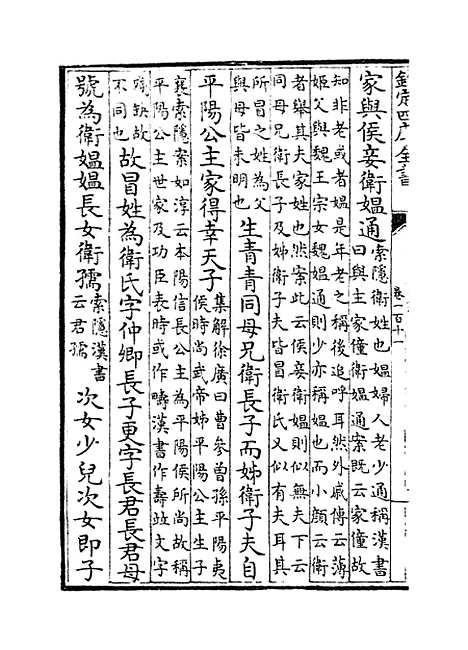 欽定四庫全書
卷一百十一
家與侯妾衛媼通索隱衛姓也媼婦人老少通稱漢書
曰與主家僮衛媼通案既云家僮故
知非老或者媼是年老之稱後追呼耳然外戚傳云薄
姬父與魏王宗女魏媼通則少亦稱媼也而小顏云衛
者舉其夫家姓也然案此云侯妾衛媼則似無夫下云
同母兄衛長子及姊衛子夫皆冒衛氏又似有夫耳其
所冒之姓為父
與母皆未明也
生青青同母兄衛長子而姊衛子夫自
平陽公主家得幸天子集解徐廣曰曹參曾孫平陽夷
侯時尚武帝姊平陽公主生子
襄索隱案如淳云本陽信長公主為平陽侯所尚故稱
平陽公主世家及功臣表時或作疇漢書作壽竝文字
殘缺故
不同也
故冒姓為衛氏字仲卿長子更字長君長君母
號為衛媼媼長女衛孺索隱漢書
云君孺
次女少兒次女即子